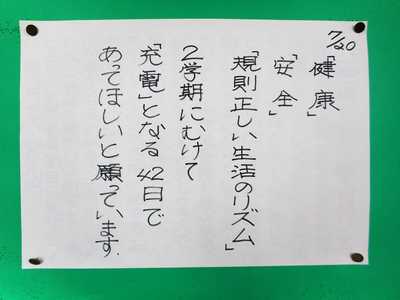 7/20
「健康」
「安全」
「規則正しい生活のリズム」
2学期にむけて
「充電」となる42日で
あってほしいと願っています.